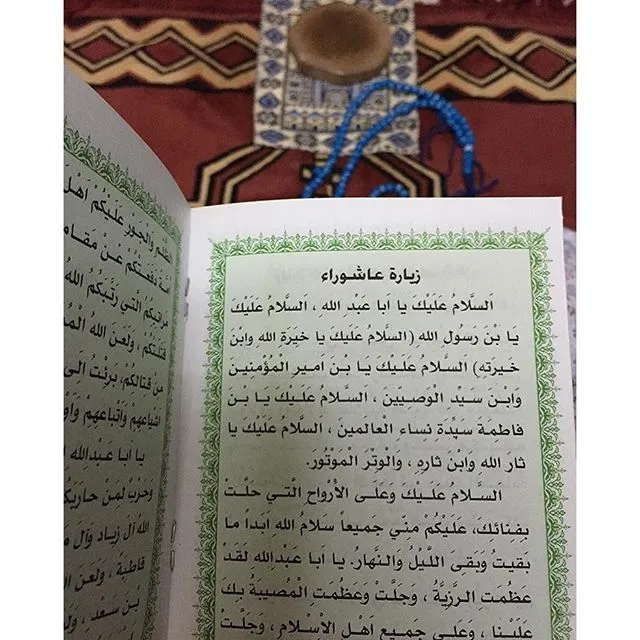 زيارة عاشوراء
اَلسَّلامُ عَلَيْكَ يا اَبا عَبْدِ الله ، اَلسَّلامُ عَلَيْكَ
يا بْنَ رَسُولِ الله (السَّلامُ عَلَيْكَ يا خَيَرَةِ الله وابْنَ
خيرتِه) اَلسَّلامُ عَلَيْكَ يا بْن اَميرِ الْمُؤْمنين
وابْنَ سيِّد الْوصيين ، السَّلامُ عليْكَ يَا بْن
فاطِمَةَ سَيِّدةِ نساءِ الْعالمين ، السَّلامُ عَلَيْكَ يا
ثارَ الله وابْنَ ثارِهِ ، والْوتْرَ الْمَوْتُورَ.
اَلسَّلامُ عَلَيْكَ وَعَلَى الأَرْواحِ الَّتي حَلَّتْ
بِفِنائكَ، عَلَيْكُمْ منّي جميعاً سَلامُ اللهِ اَبداً ما
بَقيتُ وَبَقىَ اللَّيْلُ وَالنَّهارُ. يا اَبا عَبدالله لَقَدْ
عَظُمَتِ الرَّزِيَّةُ ، وَجَلَّتْ وعظُمَتِ الْمُصيبةُ بِكَ
عَلَيْنا ، وَعَلى جَميعِ اَهْلِ الاْسْلام ، وجلّتْ
الظُّلم والْجَوْر عَلَيْكُمْ اَهْلَ
دفعتْكُمْ عَنْ مقام
مراتبكُمُ الَّتي رَتَّبَكُمُ الله
قتلتْكُمْ ، ولَعَنَ اللهُ
من قتالكُمْ، بَرِئْتُ اِلى
اشياعهِمْ واَتْباعهِمْ
يا ابا عَبْدالله
وحرْبٌ لمَنْ حاربَكُ
اللهُ آل زِياد وآل
، ولَعَن
بْن سعْد ،